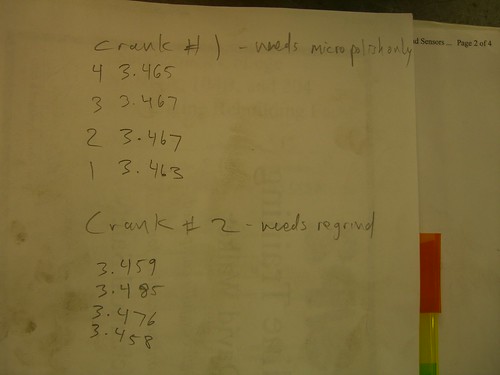 crank # 1 - needs micropolish only
4 3.465
3 3.467
2 3.467
1 3.463
Crank # 2 - needs regrind
3.459
3.485
3.476
3.458
d Sensors ... Page 2 of 4